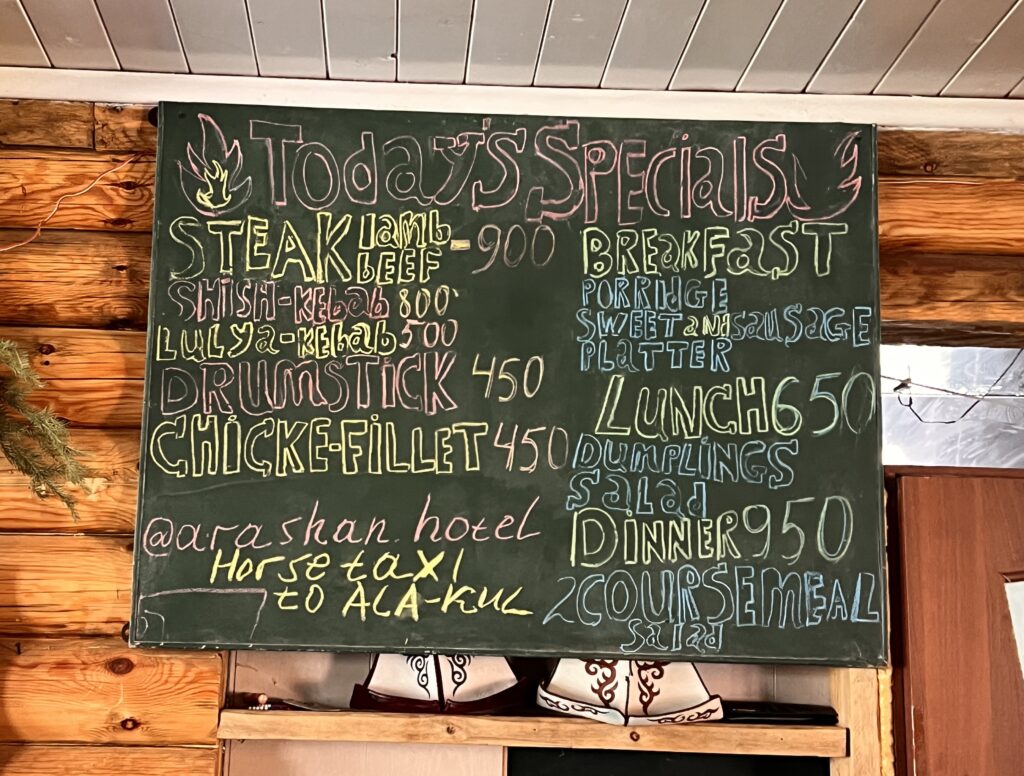 Today's Specials
STEAK lamb BEEF - 900
SHISH-KEBab 800
LULya-KEBab 500
DRUMSTICK 450
CHICKE-FILLET 450
@arashan.hotel
Horse taxi
to ALA-KUL
BREAKFAST
PORRIDGE
SWEET and SAUSAGE
PLATTER
LUNCH 650
DUMPLINGS
Salad
DINNER 950
2 COURSE MEAL
Salad